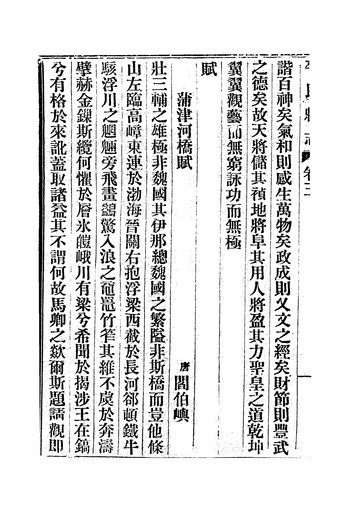 諧百神矣氣和則感生萬物矣政成則乂文之經矣財節則豐武
之德矣故天將儲其禎地將阜其用人將盈其力聖皇之道乾坤
翼翼觀藝而無窮詠功而無極
賦
蒲津河橋賦
唐 閻伯嶼
壯三輔之雄極非魏國其伊那總魏國之繁隘非斯橋而豈他條
山左臨高嶂東連於渤海晉關右抱浮梁西截於長河郤頓鐵牛
駭浮川之魍魎旁飛畫鷁驚入浪之黿鼉竹筰其維不處於奔濤
擘赫金鏁斯纜何懼於層氷皚峨川有梁兮希聞於揭涉王在鎬
兮有格於來訛蓋取諸益其不謂何故馬卿之欻爾斯題譸觀即
卷三